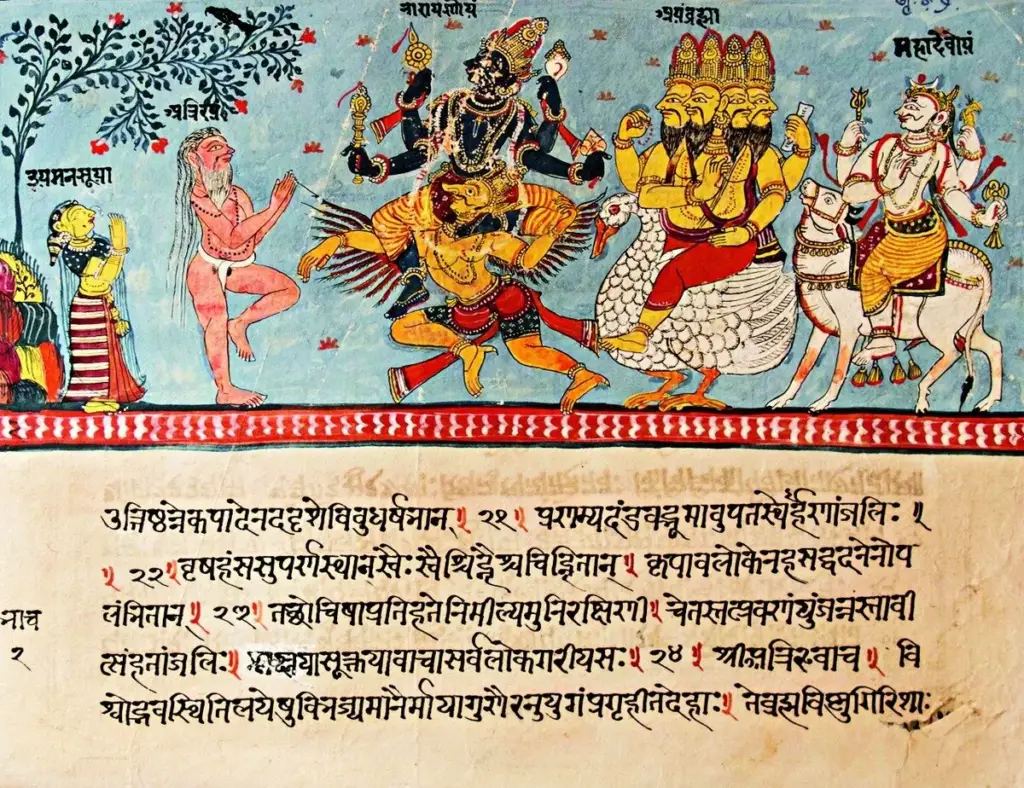 नारायणोयं
अयंब्रह्मा
महादेवोयं
इयमनसूया
उत्तिष्ठन्नेकपादेनददृशेविबुधर्षभान् ॥ २१ ॥ प्रणम्यदंडवद्भूमावुपतस्थेर्हणांजलिः ॥
॥ २२ ॥ वृषहंससुपर्णस्थान्स्वैः स्वैश्चिह्नैश्चचिह्नितान् ॥ कृपावलोकेनहसद्वदनेनोप
लंभितान् ॥ २३ ॥ तद्रोचिषाप्रतिहतेनिमील्यमुनिरक्षिणी ॥ चेतस्तत्प्रवणंयुंजन्नस्तावी
त्संहतांजलिः ॥ श्लक्ष्णयासूक्तयावाचासर्वलोकगरीयसः ॥ २४ ॥ श्रीअत्रिरुवाच ॥ वि
श्वोद्भवस्थितिलयेषुविभज्यमानैर्मायागुणैरनुयुगंप्रगृहीतदेहाः ॥ तेब्रह्मविष्णुगिरिशाः